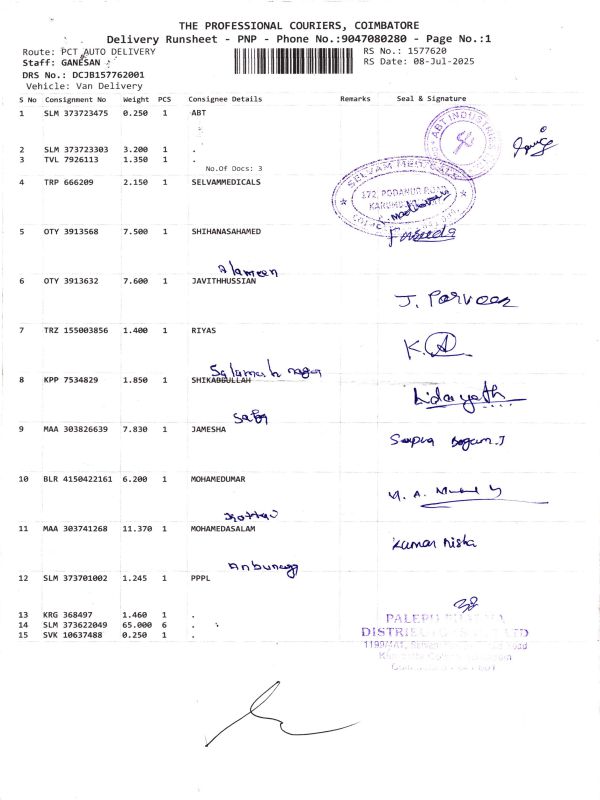 THE PROFESSIONAL COURIERS, COIMBATORE
Delivery Runsheet - PNP - Phone No.:9047080280 - Page No.:1
Route: PCT AUTO DELIVERY RS No.: 1577620
Staff: GANESAN RS Date: 08-Jul-2025
DRS No.: DCJB157762001
Vehicle: Van Delivery
S No Consignment No Weight PCS Consignee Details Remarks Seal & Signature
1 SLM 373723475 0.250 1 ABT
ABT INDUSTRIES
2 SLM 373723303 3.200 1 .
3 TVL 7926113 1.350 1 .
No.Of Docs: 3
4 TRP 666209 2.150 1 SELVAMMEDICALS
SELVAM MEDICALS
172, PODANUR ROAD
5 OTY 3913568 7.500 1 SHIHANASAHAMED
Fareeda
Alameen
6 OTY 3913632 7.600 1 JAVITHHUSSIAN
J. Parveen
7 TRZ 155003856 1.400 1 RIYAS
K.A
Salamath nagar
8 KPP 7534829 1.850 1 SHIKABDULLAH
Hidayath
9 MAA 303826639 7.830 1 JAMESHA
Begam.J
10 BLR 4150422161 6.200 1 MOHAMEDUMAR
M. A.
11 MAA 303741268 11.370 1 MOHAMEDASALAM
Kumar Nisha
Anbunagar
12 SLM 373701002 1.245 1 PPPL
13 KRG 368497 1.460 1 .
14 SLM 373622049 65.000 6 .
15 SVK 10637488 0.250 1 .
PALEPU PHARMA
DISTRIBUTORS PVT LTD